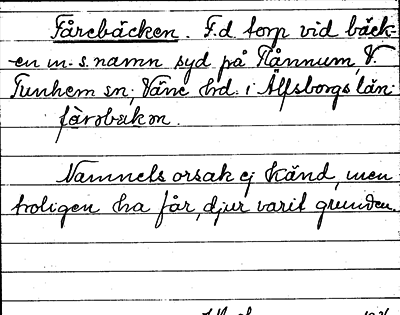 Fårebäcken. F.d. torp vid bäck-
en m. s. namn syd på Flånnum, V.
Tunhem sn; Väne hd. i Älfsborgs län.
fårobäkon.
Namnets orsak ej känd, men
troligen ha får, djur varit grunden.